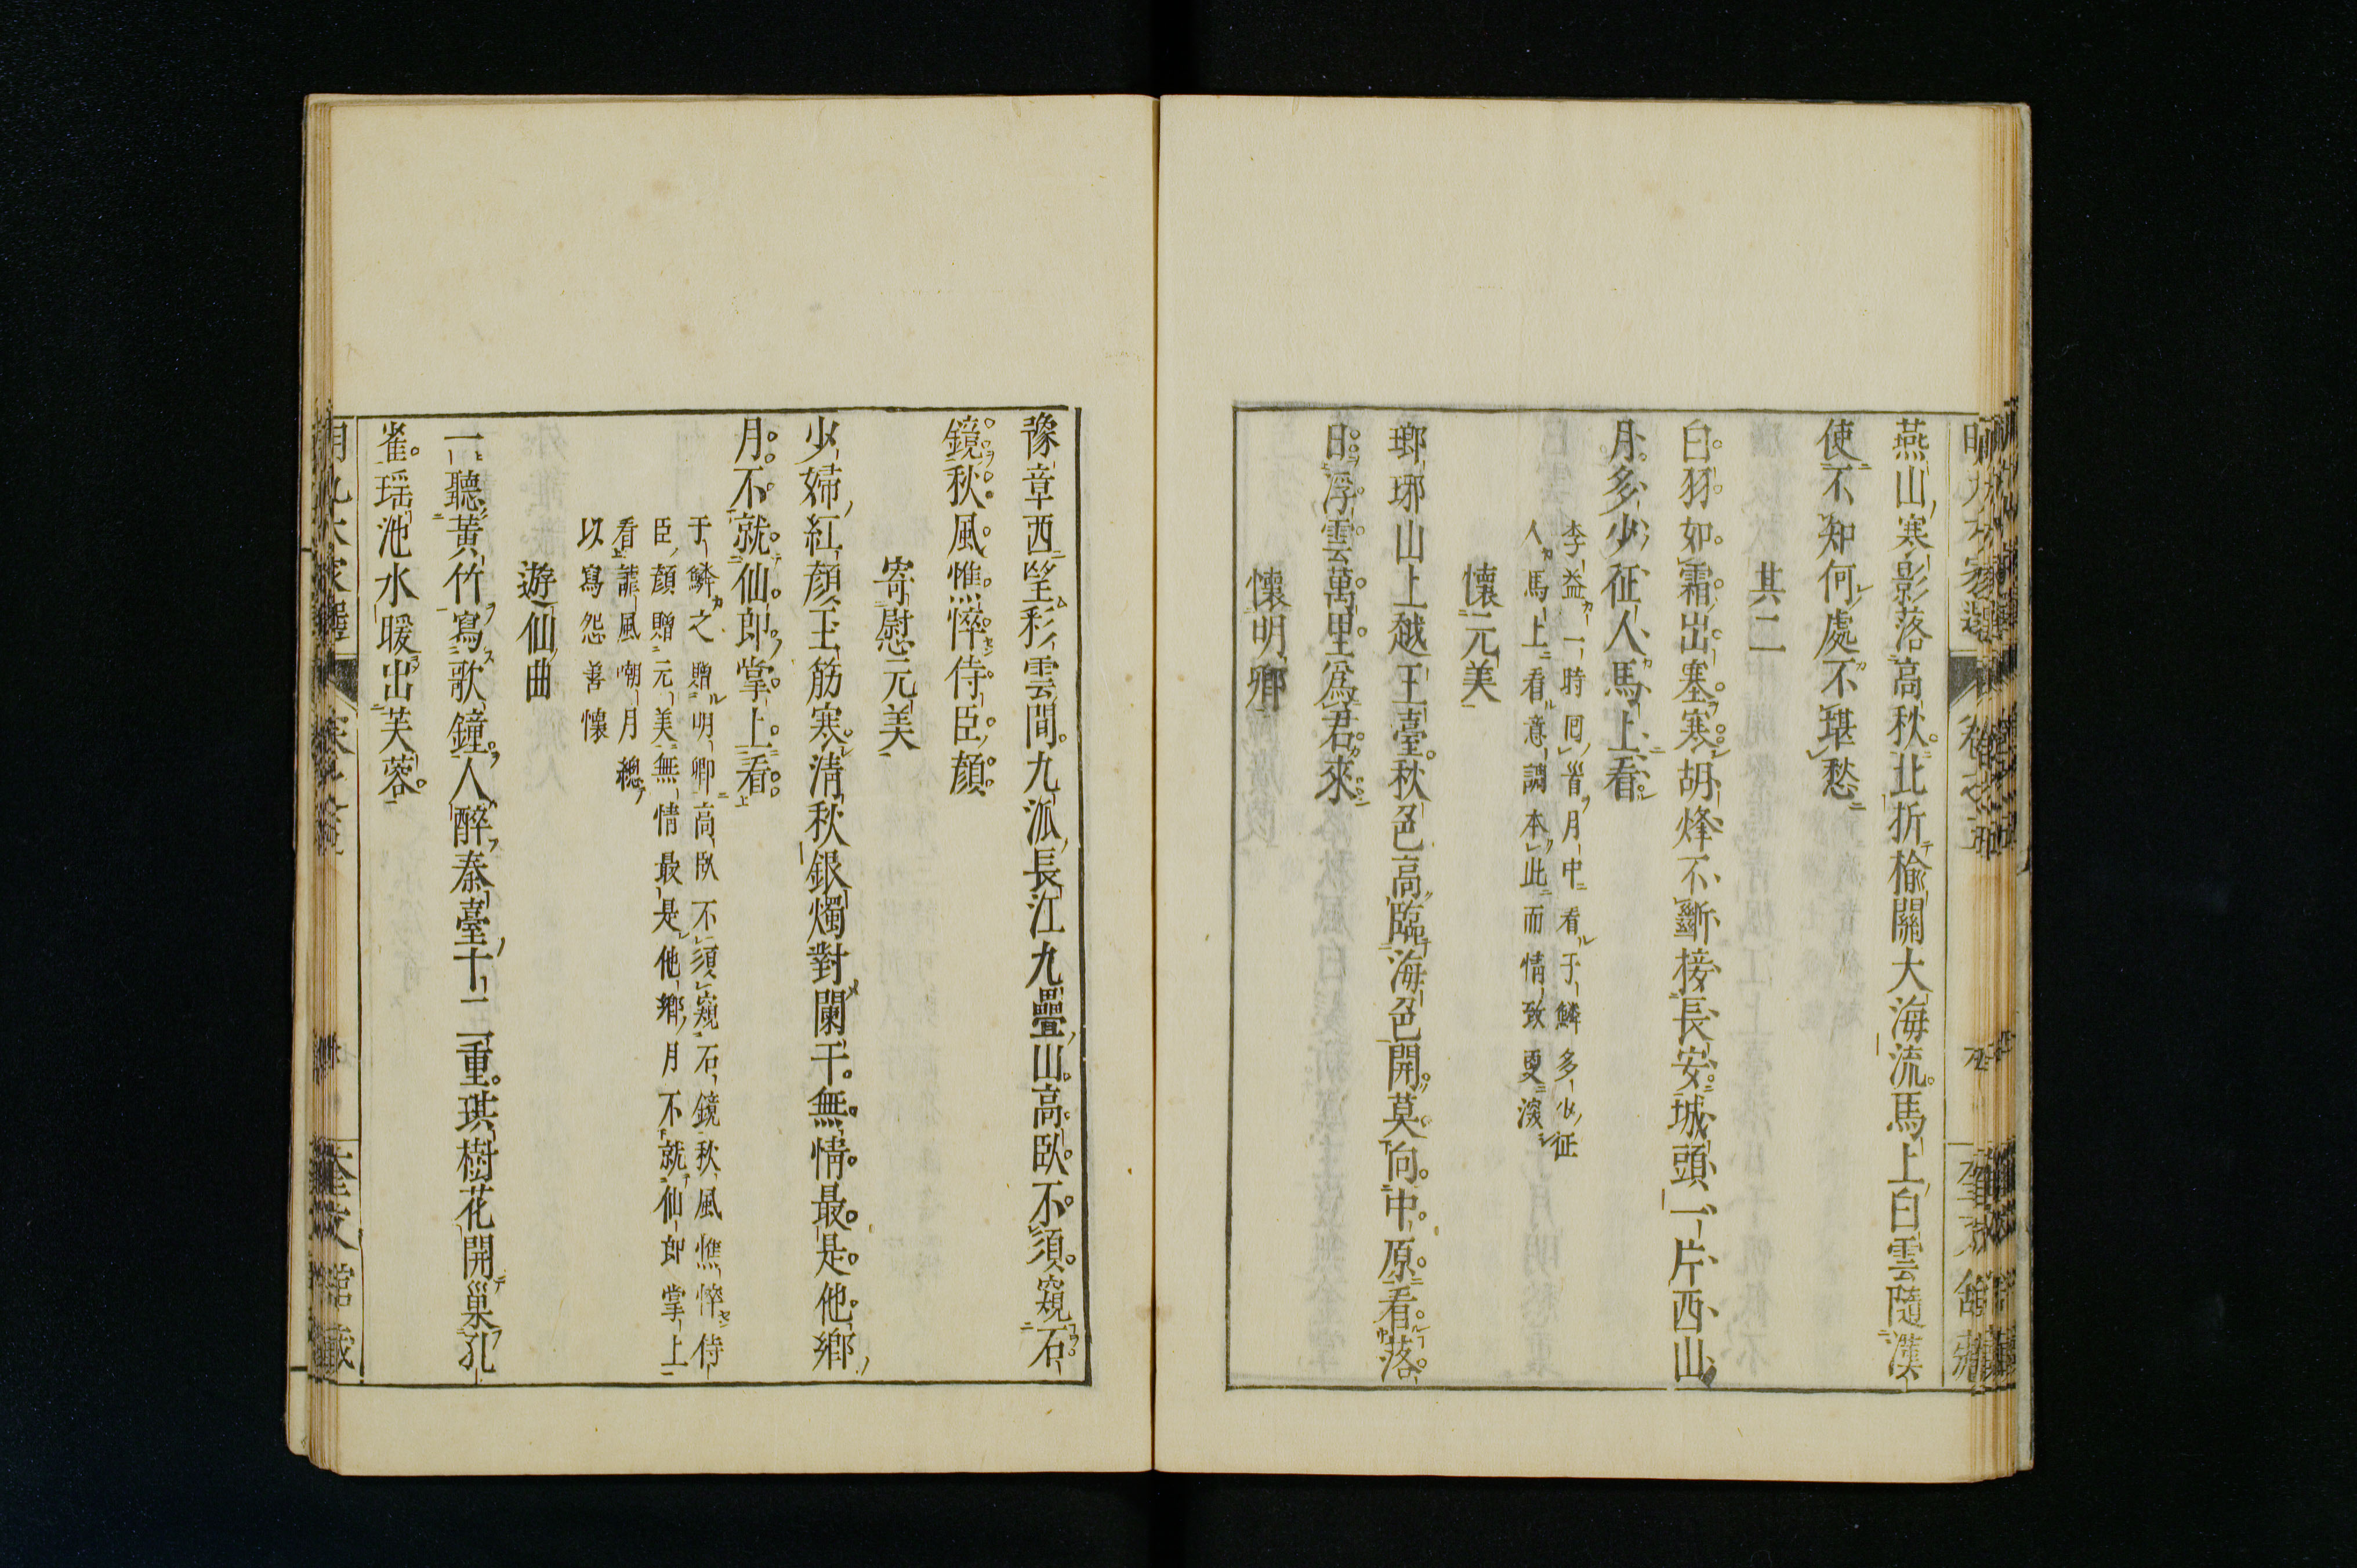 燕山寒影落高秋北折榆關大海流馬上白雲隨漢
使不知何處不堪愁
其二
白羽如霜出塞寒胡烽不斷接長安城頭一片西山
月多少征人馬上看
李益一時回首月中看于鱗多少征
人馬上看意調本此而情致更深
懷元美
瑯琊山上越王臺秋色高臨海色開莫向中原看落
日浮雲萬里爲君來
懷明卿
豫章西望彩雲間九派長江九疊山高臥不須窺石
鏡秋風憔悴侍臣顏
寄慰元美
少婦紅顏玉筋寒清秋銀燭對闌干無情最是他鄉
月不就仙郎掌上看
于鱗之贈明卿高臥不須窺石鏡秋風憔悴侍
臣顏贈元美無情最是他鄉月不就仙郎掌上
看誰風嘲月總
以寫怨善懷
遊仙曲
一聽黃竹寫歌鐘人醉秦臺十二重琪樹花開巢孔
雀瑶池水暖出芙蓉